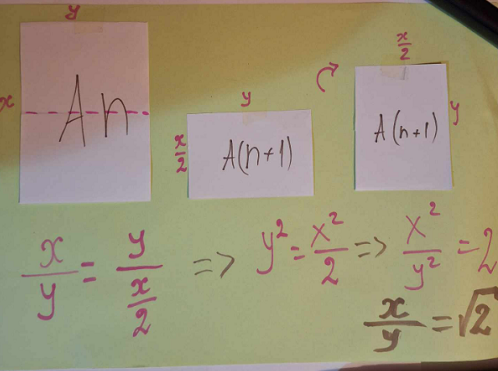 y
x
An
y
x/2
A(n+1)
x/2
y
A(n+1)
x/y = y/(x/2) => y² = x²/2 => x²/y² = 2
x/y = √2